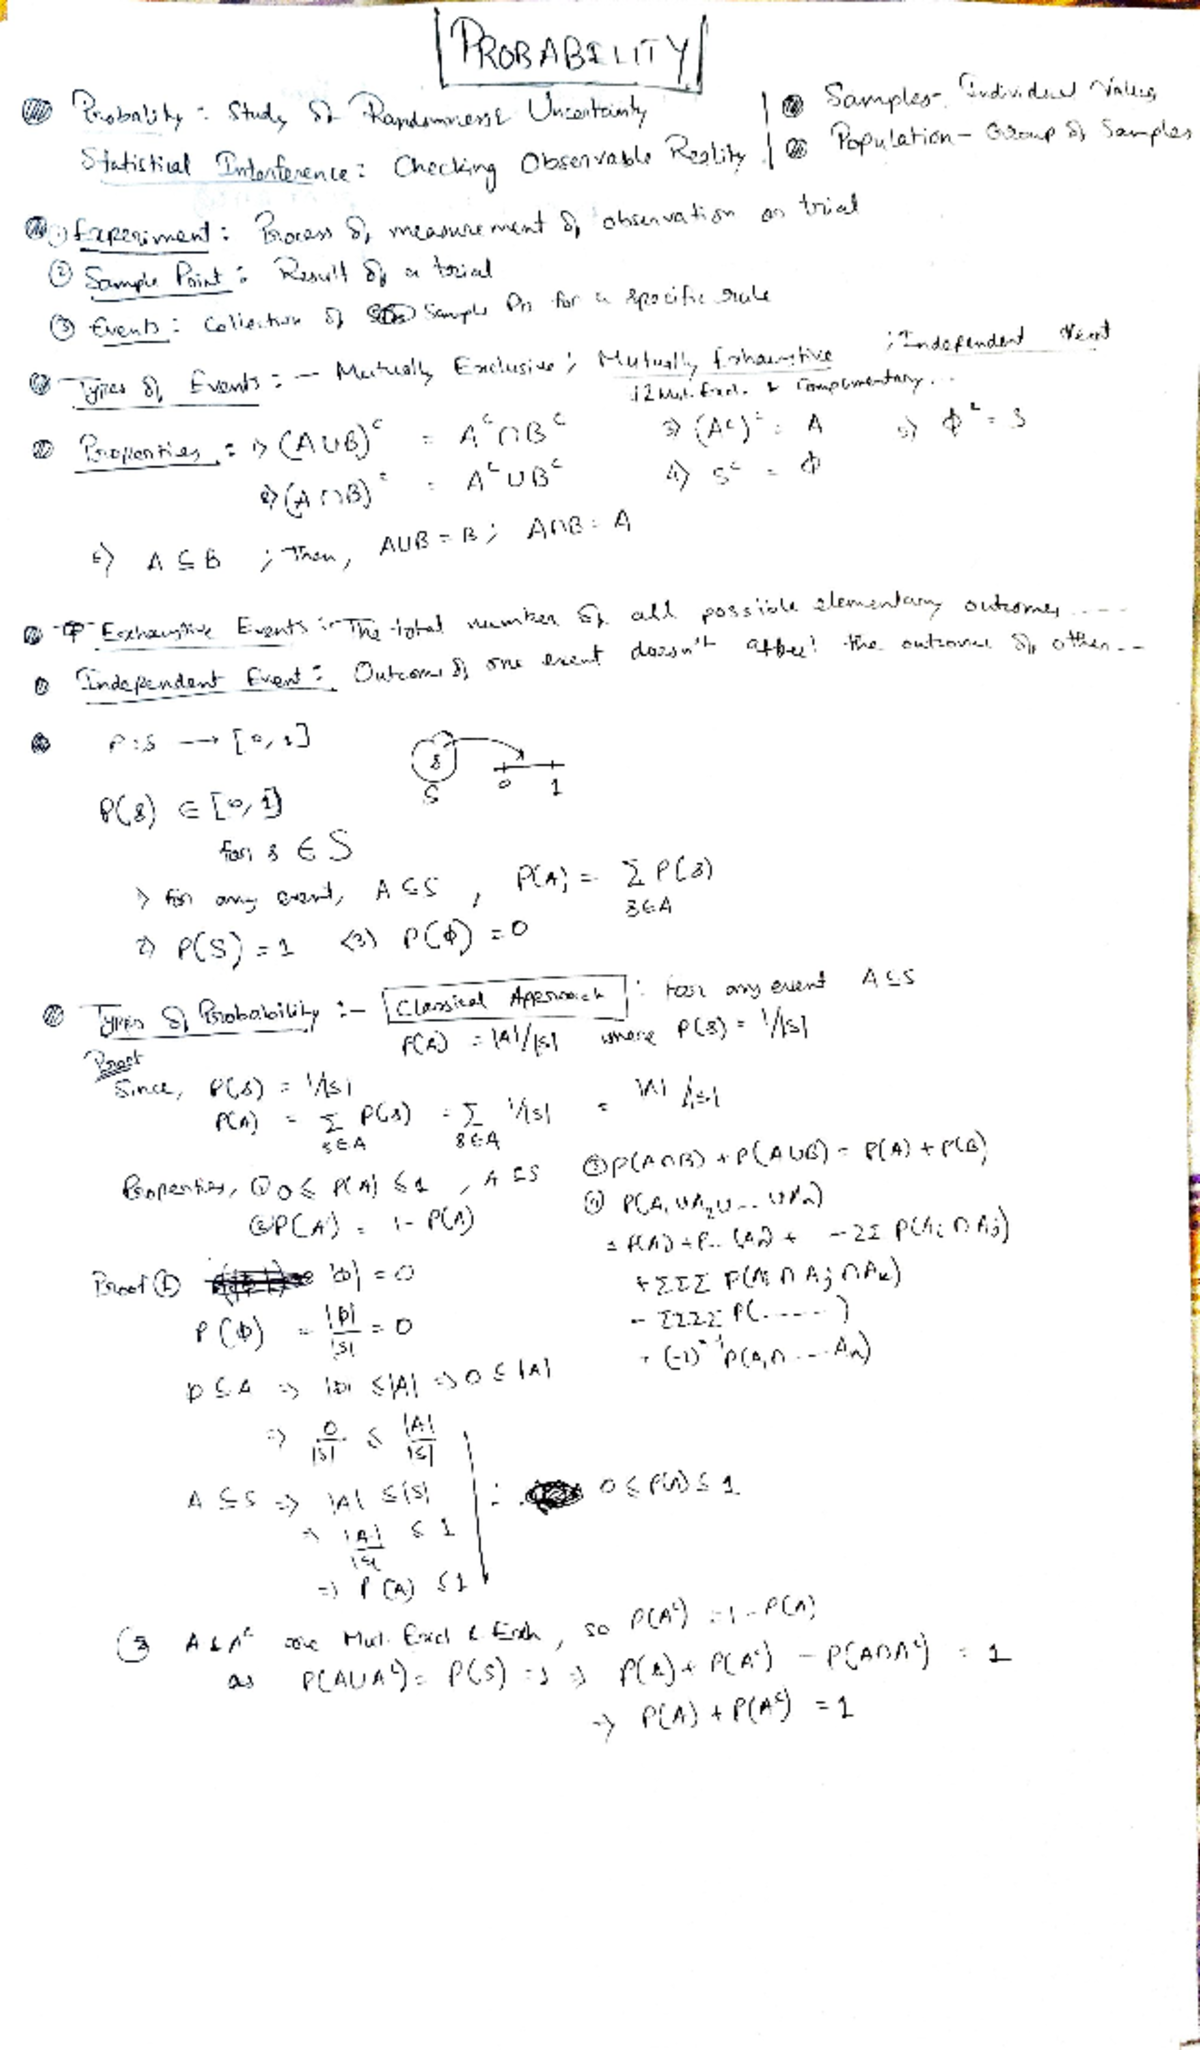 PROBABILITY
Probality : Study of Randomness & Uncertainty
Statistical Interference : Checking Observable Reality
Samples - Individual Values
Population - Group of Samples
① Experiment : Process of measurement of observation or trial
② Sample Point : Result of a trial
③ Events : Collection of Sample Pts for a specific rule
Types of Events : - Mutually Exclusive ; Mutually Exhaustive ; Independent Event
12 Mut. Excl. & Complimentary...
Properties : 1) (A∪B)ᶜ = Aᶜ∩Bᶜ 3) (Aᶜ)ᶜ = A 5) ϕᶜ = S
2) (A∩B)ᶜ = Aᶜ∪Bᶜ 4) Sᶜ = ϕ
6) A ⊆ B ; Then, A∪B = B ; A∩B = A
Exhaustive Events :- The total number of all possible elementary outcomes ....
Independent Event : Outcome of one event doesn't affect the outcome of other...
P : S → [0, 1]
s
S 0 1
P(s) ∈ [0, 1]
for s ∈ S
1) for any event, A ⊆ S , P(A) = Σ P(s)
s∈A
2) P(S) = 1 (3) P(ϕ) = 0
Types of Probability :- Classical Approach : For any event A ⊆ S
P(A) = |A|/|S| where P(s) = 1/|S|
Proof
Since, P(s) = 1/|S|
P(A) = Σ P(s) = Σ 1/|S| = |A|/|S|
s∈A s∈A
Properties, ① 0 ≤ P(A) ≤ 1 , A ⊆ S
② P(A') = 1 - P(A)
③ P(A∩B) + P(A∪B) = P(A) + P(B)
④ P(A₁∪A₂∪...∪An)
= P(A₁) + P..(An) + -ΣΣ P(Ai∩Aj)
+ΣΣΣ P(Ai∩Aj∩Ak)
- ΣΣΣΣ P(......)
+ (-1)ⁿ⁻¹ P(A₁∩...An)
Proof ① |ϕ| = 0
P(ϕ) = |ϕ|/|S| = 0
ϕ ⊆ A ⇒ |ϕ| ≤ |A| ⇒ 0 ≤ |A|
⇒ 0/|S| ≤ |A|/|S|
A ⊆ S ⇒ |A| ≤ |S|
⇒ |A|/|S| ≤ 1
⇒ P(A) ≤ 1
∴ 0 ≤ P(A) ≤ 1
A & Aᶜ are Mut. Excl & Exh, so P(Aᶜ) = 1 - P(A)
as P(A∪Aᶜ) = P(S) = 1 ⇒ P(A) + P(Aᶜ) - P(A∩Aᶜ) = 1
⇒ P(A) + P(Aᶜ) = 1